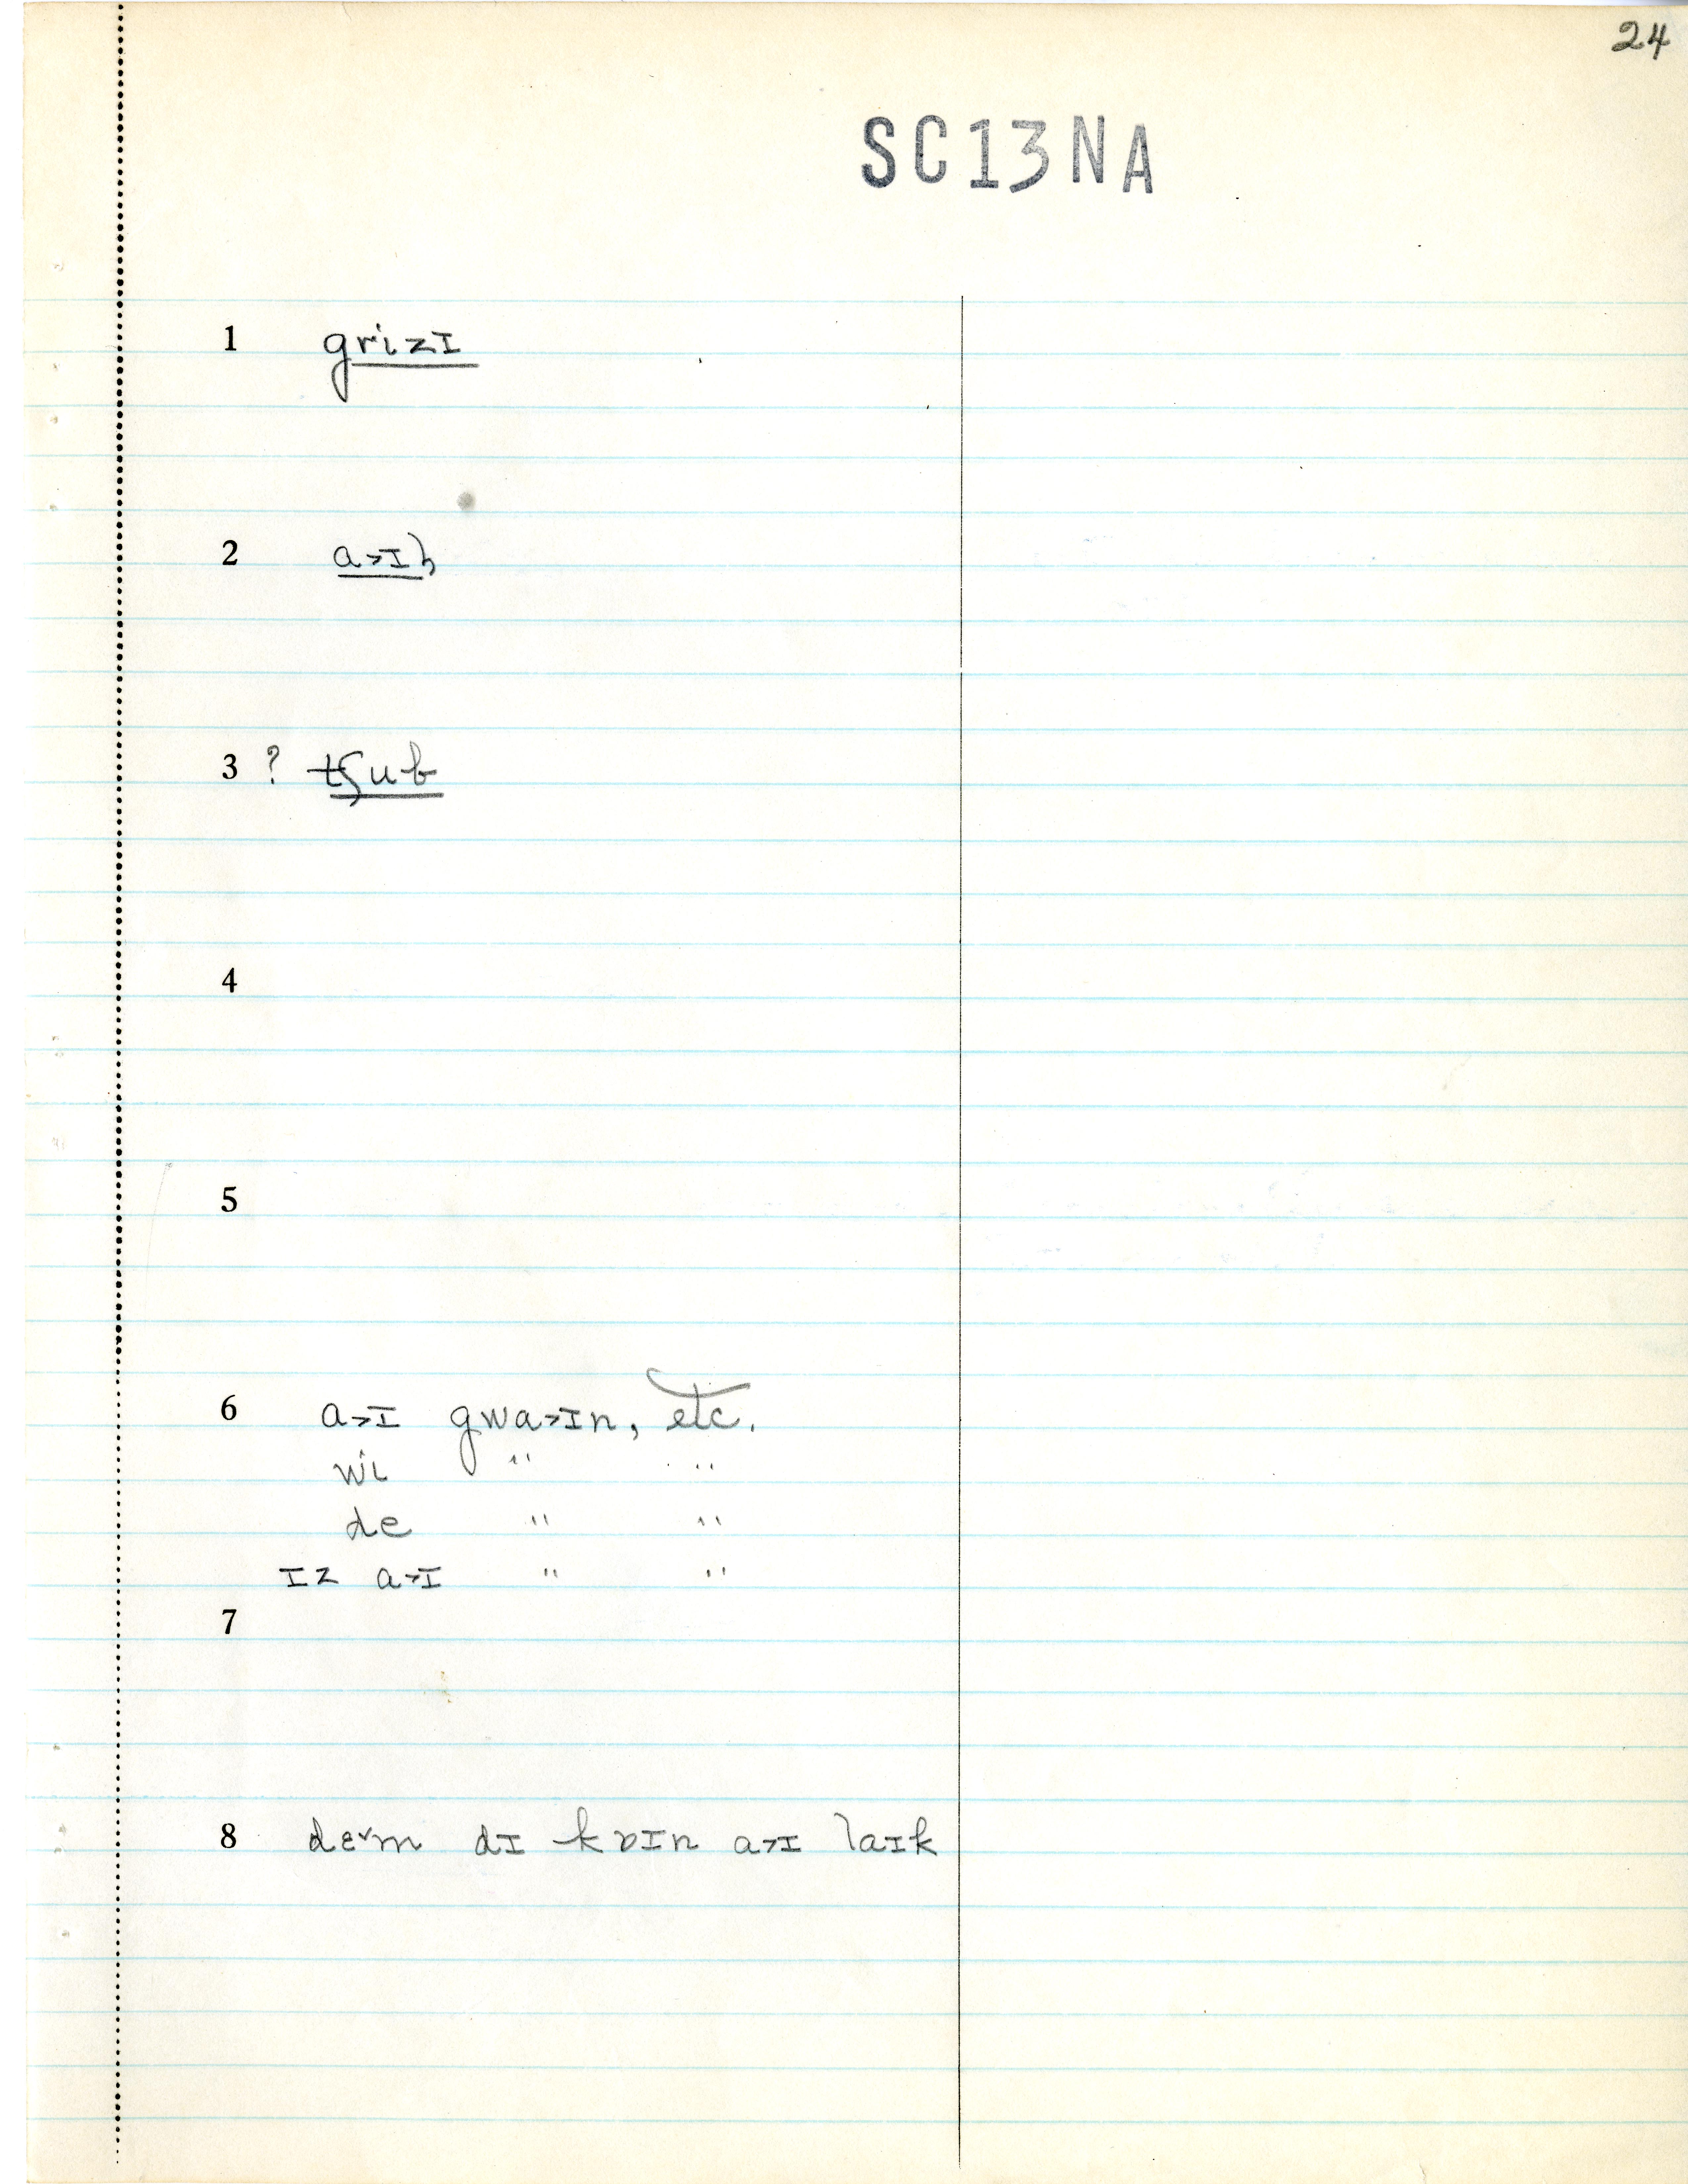 24
SC13NA
1 grizɪ
2 a>ɪl̩
3 ? tʃub
4
5
6 a>ɪ gwa>ɪn, etc.
wi " "
de " "
ɪz a>ɪ " "
7
8 dɛ˅m dɪ kɒɪn a>ɪ laɪk